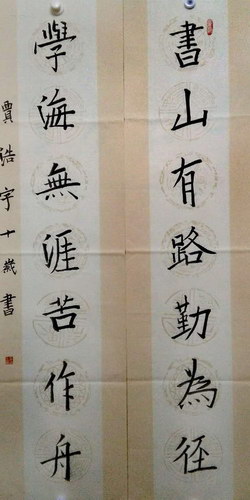 書山有路勤為徑
學海無涯苦作舟
賈浩宇十歲書